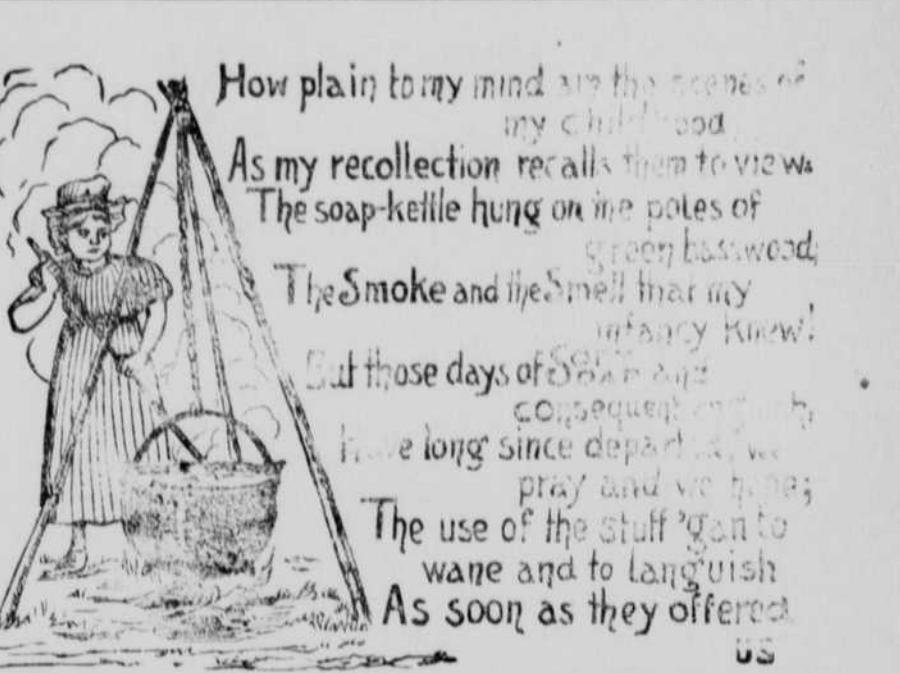 How plain to my mind are the scenes of
my childhood
As my recollection recalls them to view.
The soap-kettle hung on the poles of
green basswood;
The Smoke and the Smell that my
infancy knew!
But those days of Soap and
consequent
Have long since departed, we
pray and we hope;
The use of the stuff 'gan to
wane and to languish
As soon as they offered
us